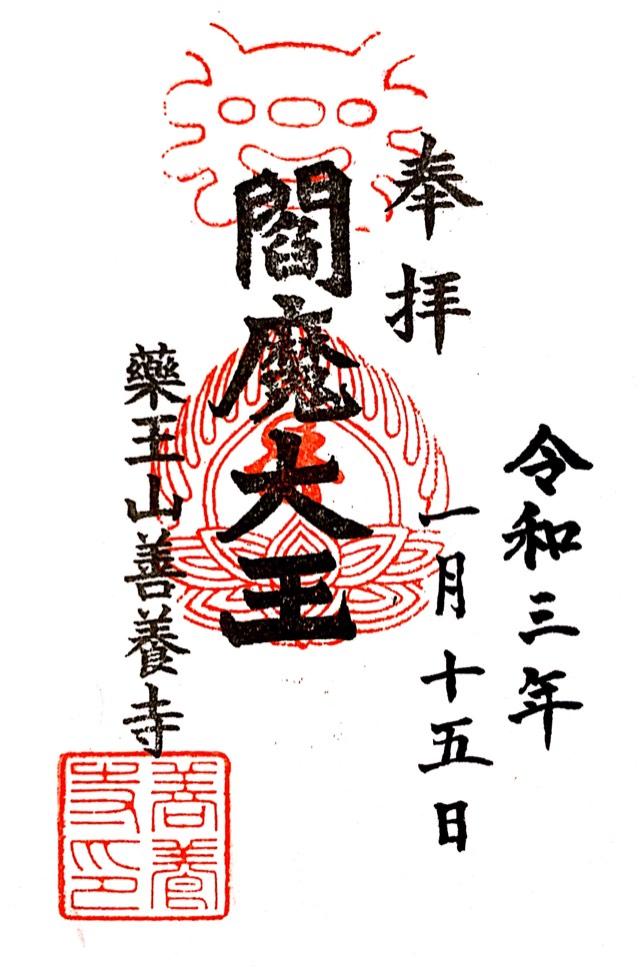 令和三年
一月十五日
奉拝
閻魔大王
藥王山善養寺
善養
寺印